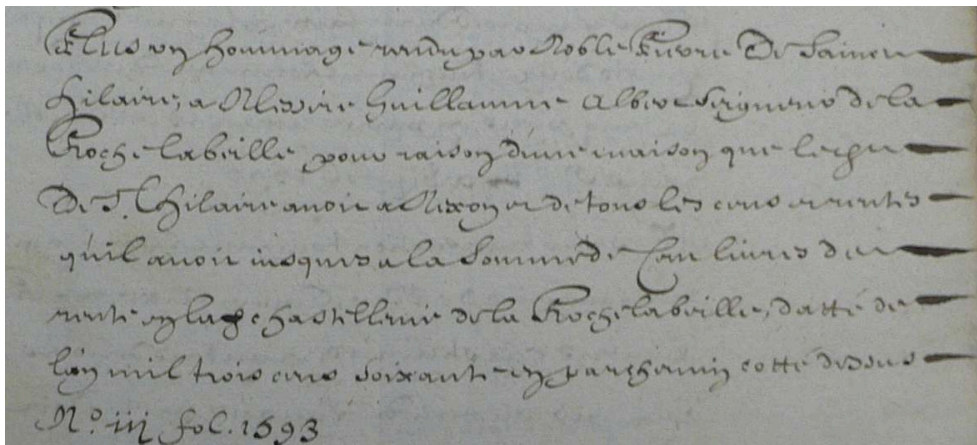 Plus un hommage rendu par Noble Pierre De Sainct
hilaire, a Messire Guillaume Albert Seigneur de la
Roche labeille, pour raison d'une maison que led sr
De St. Hilaire avoit a Nexon et de tous les cens et rentes
quil avoit iusques a la Somme de Cent livres de
rente en la chastellenie de la Roche labeille, datté de
lan mil trois cens soixante en parchemin cotté dessous
No. iii fol. 1593